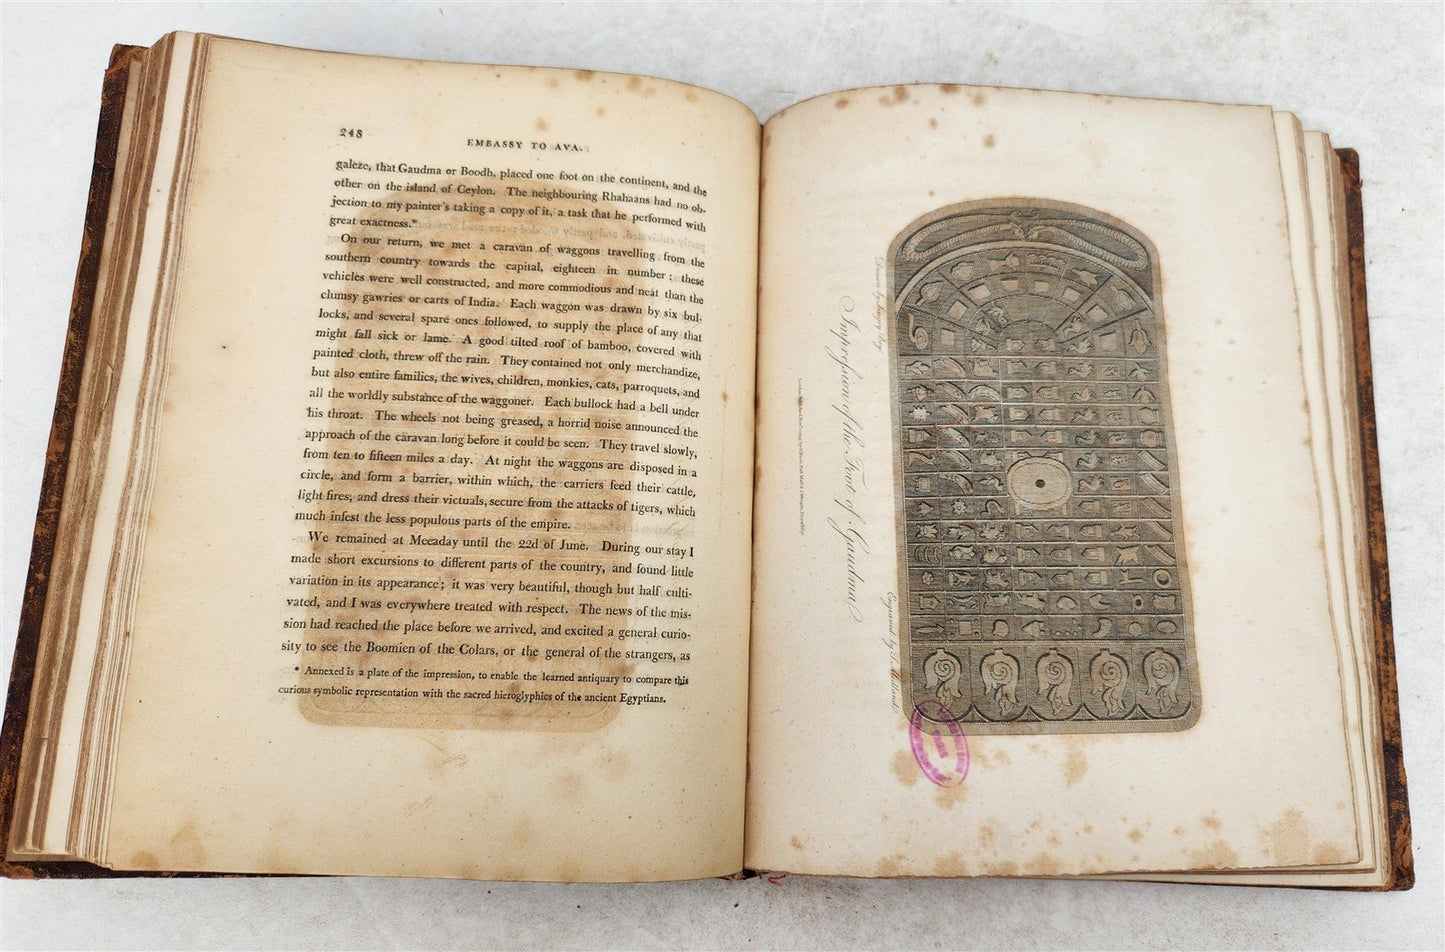 248
EMBASSY TO AVA.
galeze, that Gaudma or Boodh, placed one foot on the continent, and the
other on the island of Ceylon. The neighbouring Rhahaans had no ob-
jection to my painter's taking a copy of it, a task that he performed with
great exactness.*
On our return, we met a caravan of waggons travelling from the
southern country towards the capital, eighteen in number; these
vehicles were well constructed, and more commodious and neat than the
clumsy gawries or carts of India. Each waggon was drawn by six bul-
locks, and several spare ones followed, to supply the place of any that
might fall sick or lame. A good tilted roof of bamboo, covered with
painted cloth, threw off the rain. They contained not only merchandize,
but also entire families, the wives, children, monkies, cats, parroquets, and
all the worldly substance of the waggoner. Each bullock had a bell under
his throat. The wheels not being greased, a horrid noise announced the
approach of the caravan long before it could be seen. They travel slowly,
from ten to fifteen miles a day. At night the waggons are disposed in a
circle, and form a barrier, within which, the carriers feed their cattle,
light fires, and dress their victuals, secure from the attacks of tigers, which
much infest the less populous parts of the empire.
We remained at Meeaday until the 22d of June. During our stay I
made short excursions to different parts of the country, and found little
variation in its appearance; it was very beautiful, though but half culti-
vated, and I was everywhere treated with respect. The news of the mis-
sion had reached the place before we arrived, and excited a general curio-
sity to see the Boomien of the Colars, or the general of the strangers, as
* Annexed is a plate of the impression, to enable the learned antiquary to compare this
curious symbolic representation with the sacred hieroglyphics of the ancient Egyptians.
Drawn by Singey Bey
Engraved by T. Medland
Impression of the Foot of Gaudma